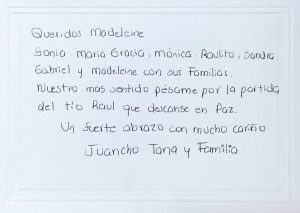 Queridos Madeleine
Sonia, Maria Gracia, Mónica, Raulito, Sandra
Gabriel y Madeleine con sus Familias.
Nuestro mas sentido pésame por la partida
del tío Raul que descanse en Paz.
Un fuerte abrazo con mucho cariño
Juancho Tana y Familia